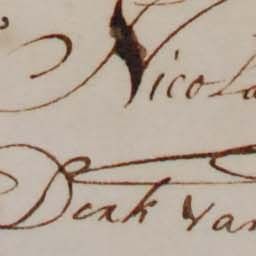 Nicola
Derk Van